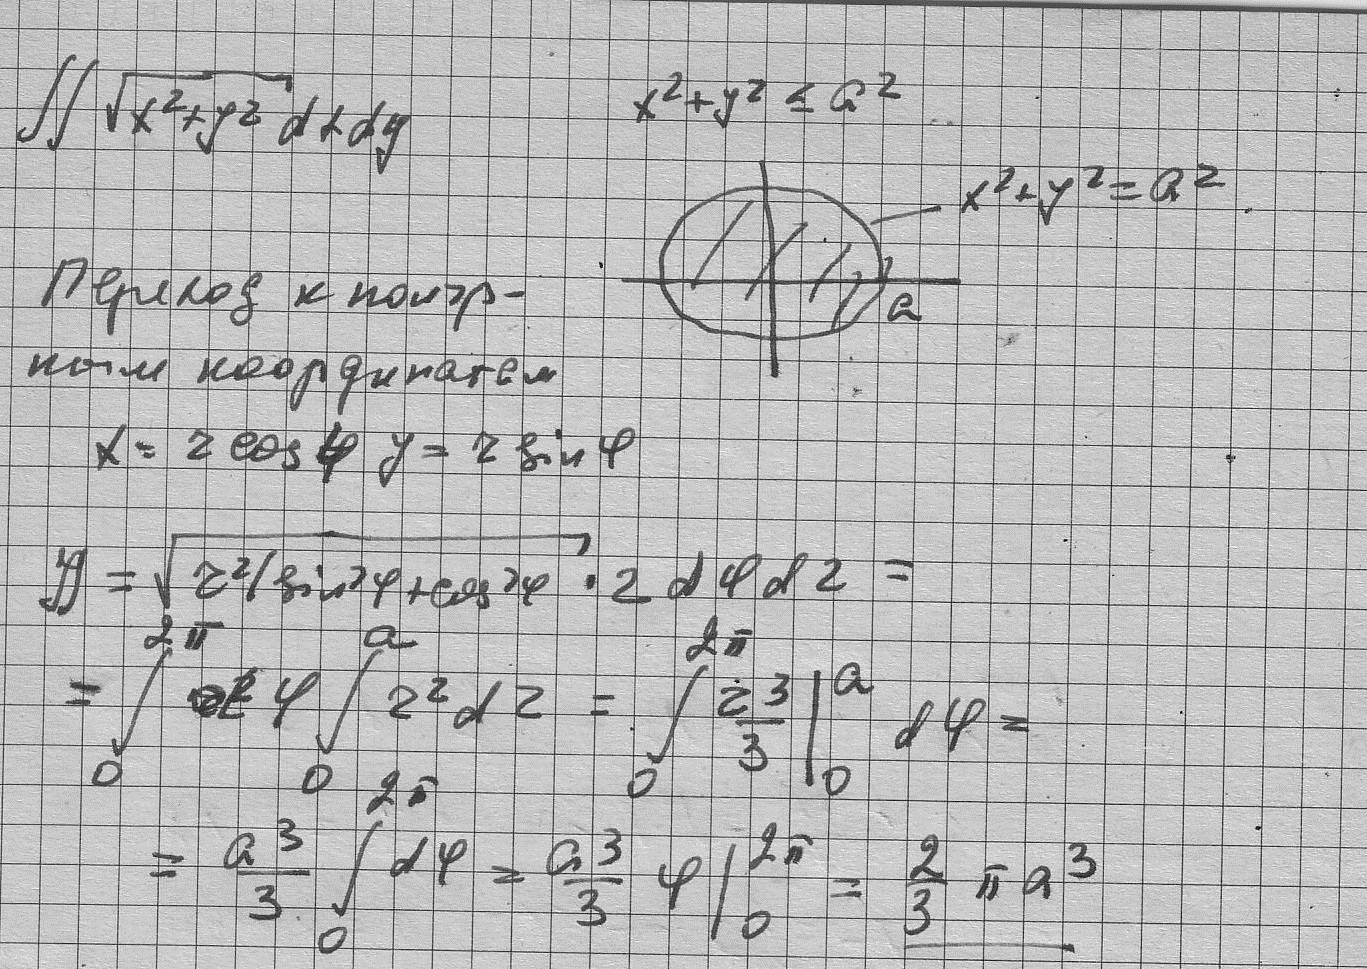 ∬ √(x²+y²) dxdy
x²+y² ≤ a²
x²+y² = a²
a
Переход к поляр-
ным координатам
x = r cos φ y = r sin φ
∬ = √(r²(sin²φ+cos²φ · r dφ dr =
= ∫₀^2π dφ ∫₀^a r² dr = ∫₀^2π r³/3 |₀^a dφ =
= a³/3 ∫₀^2π dφ = a³/3 φ |₀^2π = 2/3 π a³